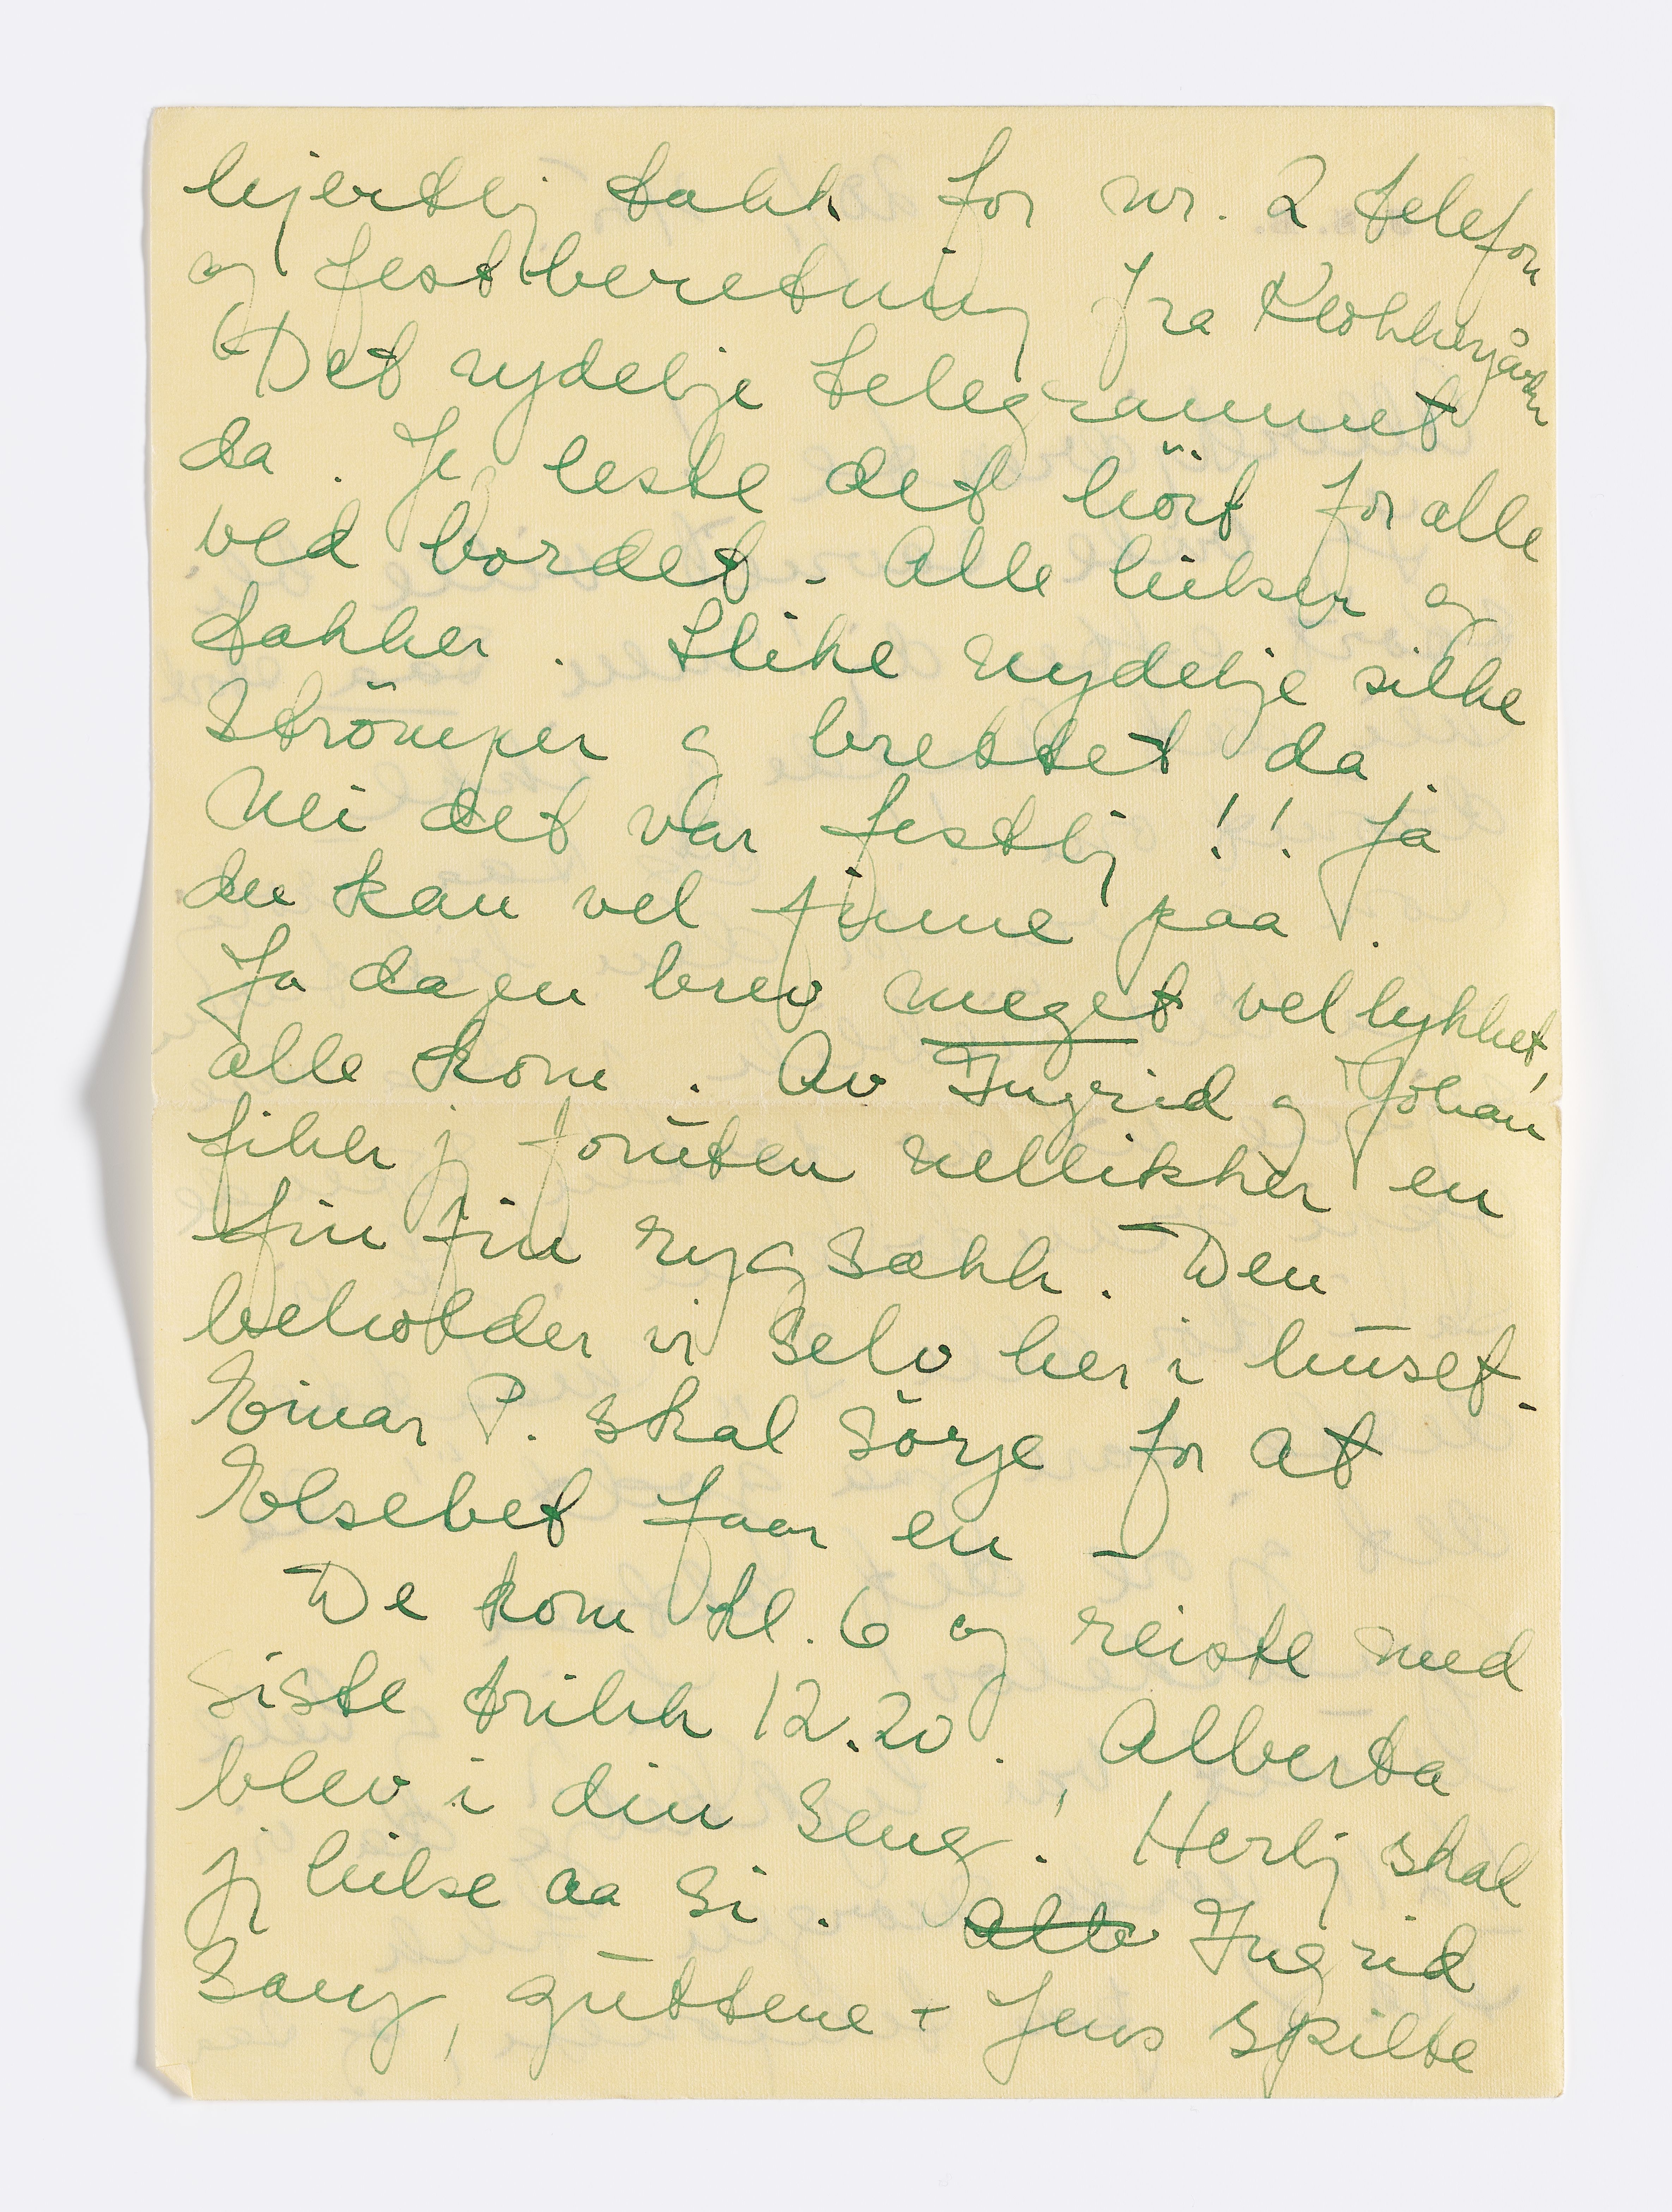 hjertlig takk for nr. 2 telefon
og festberetning fra Klokkergården
Det nydelige telegrammet
da. Jeg leste det höit for alle
ved bordet. Alle hilser og
takker. Slike nydelige silke
strömper og brettet da.
Nei det var festlig!! Ja
du kan vel finne paa.
Ja dagen brev meget vellykket,
alle kom. Av Ingrid og Johan
fikk jeg foruten nellikker en
fin fin rygsækk. Den
beholder vi selv her i huset.
Einar P. skal sörge for at
Elsebet faar en –
De kom kl. 6 og reiste med
siste trikk 12.20. Alberta
blev i din seng! Herlig skal
jeg hilse aa si. Alb Ingrid
sang, guttene + Jens spilte